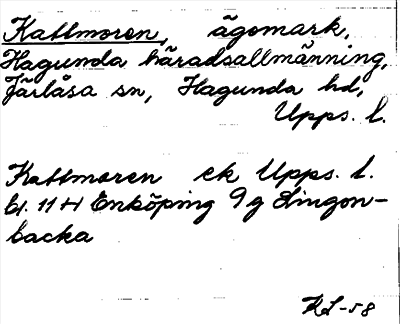 Kattmoren, ägomark,
Hagunda häradsallmänning,
Järlåsa sn, Hagunda hd,
Upps. l.
Kattmoren ek Upps. l.
bl. 11 H Enköping 9 g Lingon-
backa
KL-58